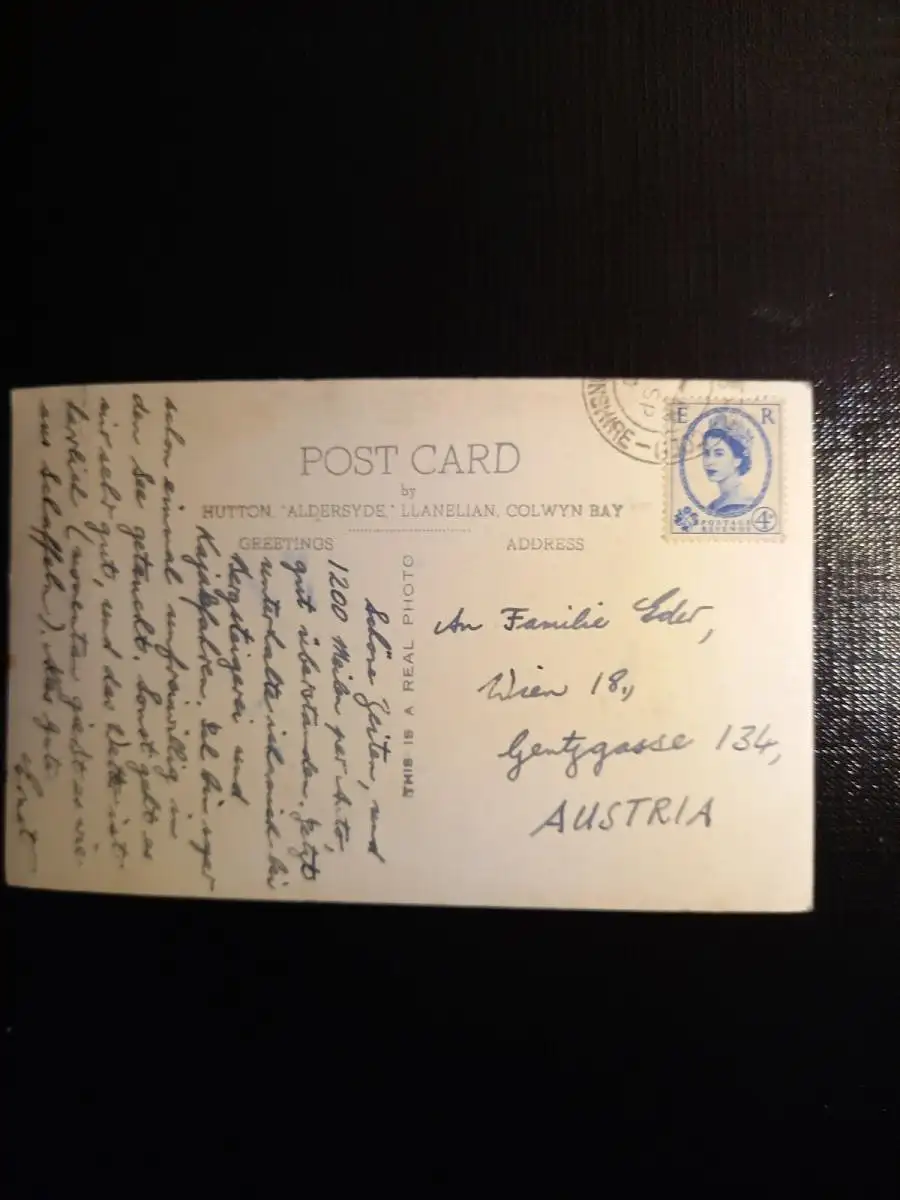 POST CARD
by
HUTTON, "ALDERSYDE," LLANELIAN, COLWYN BAY
GREETINGS
ADDRESS
THIS IS A REAL PHOTO
Schöne Zeiten, und
1200 Meilen per Auto,
gut überstanden. Jetzt
unterhalte ich mich bei
Bergsteigerei und
Kajakfahren. Ich bin sogar
schon einmal unfreiwillig in
den See getaucht. Sonst geht es
mir sehr gut, und das Wetter ist
(momentan gießt es wie
aus Schaffeln). Alles Gute
Ernst
An Familie Eder,
Wien 18.,
Gentzgasse 134,
AUSTRIA
E R
POSTAGE
REVENUE
4D
NSHIRE
SP